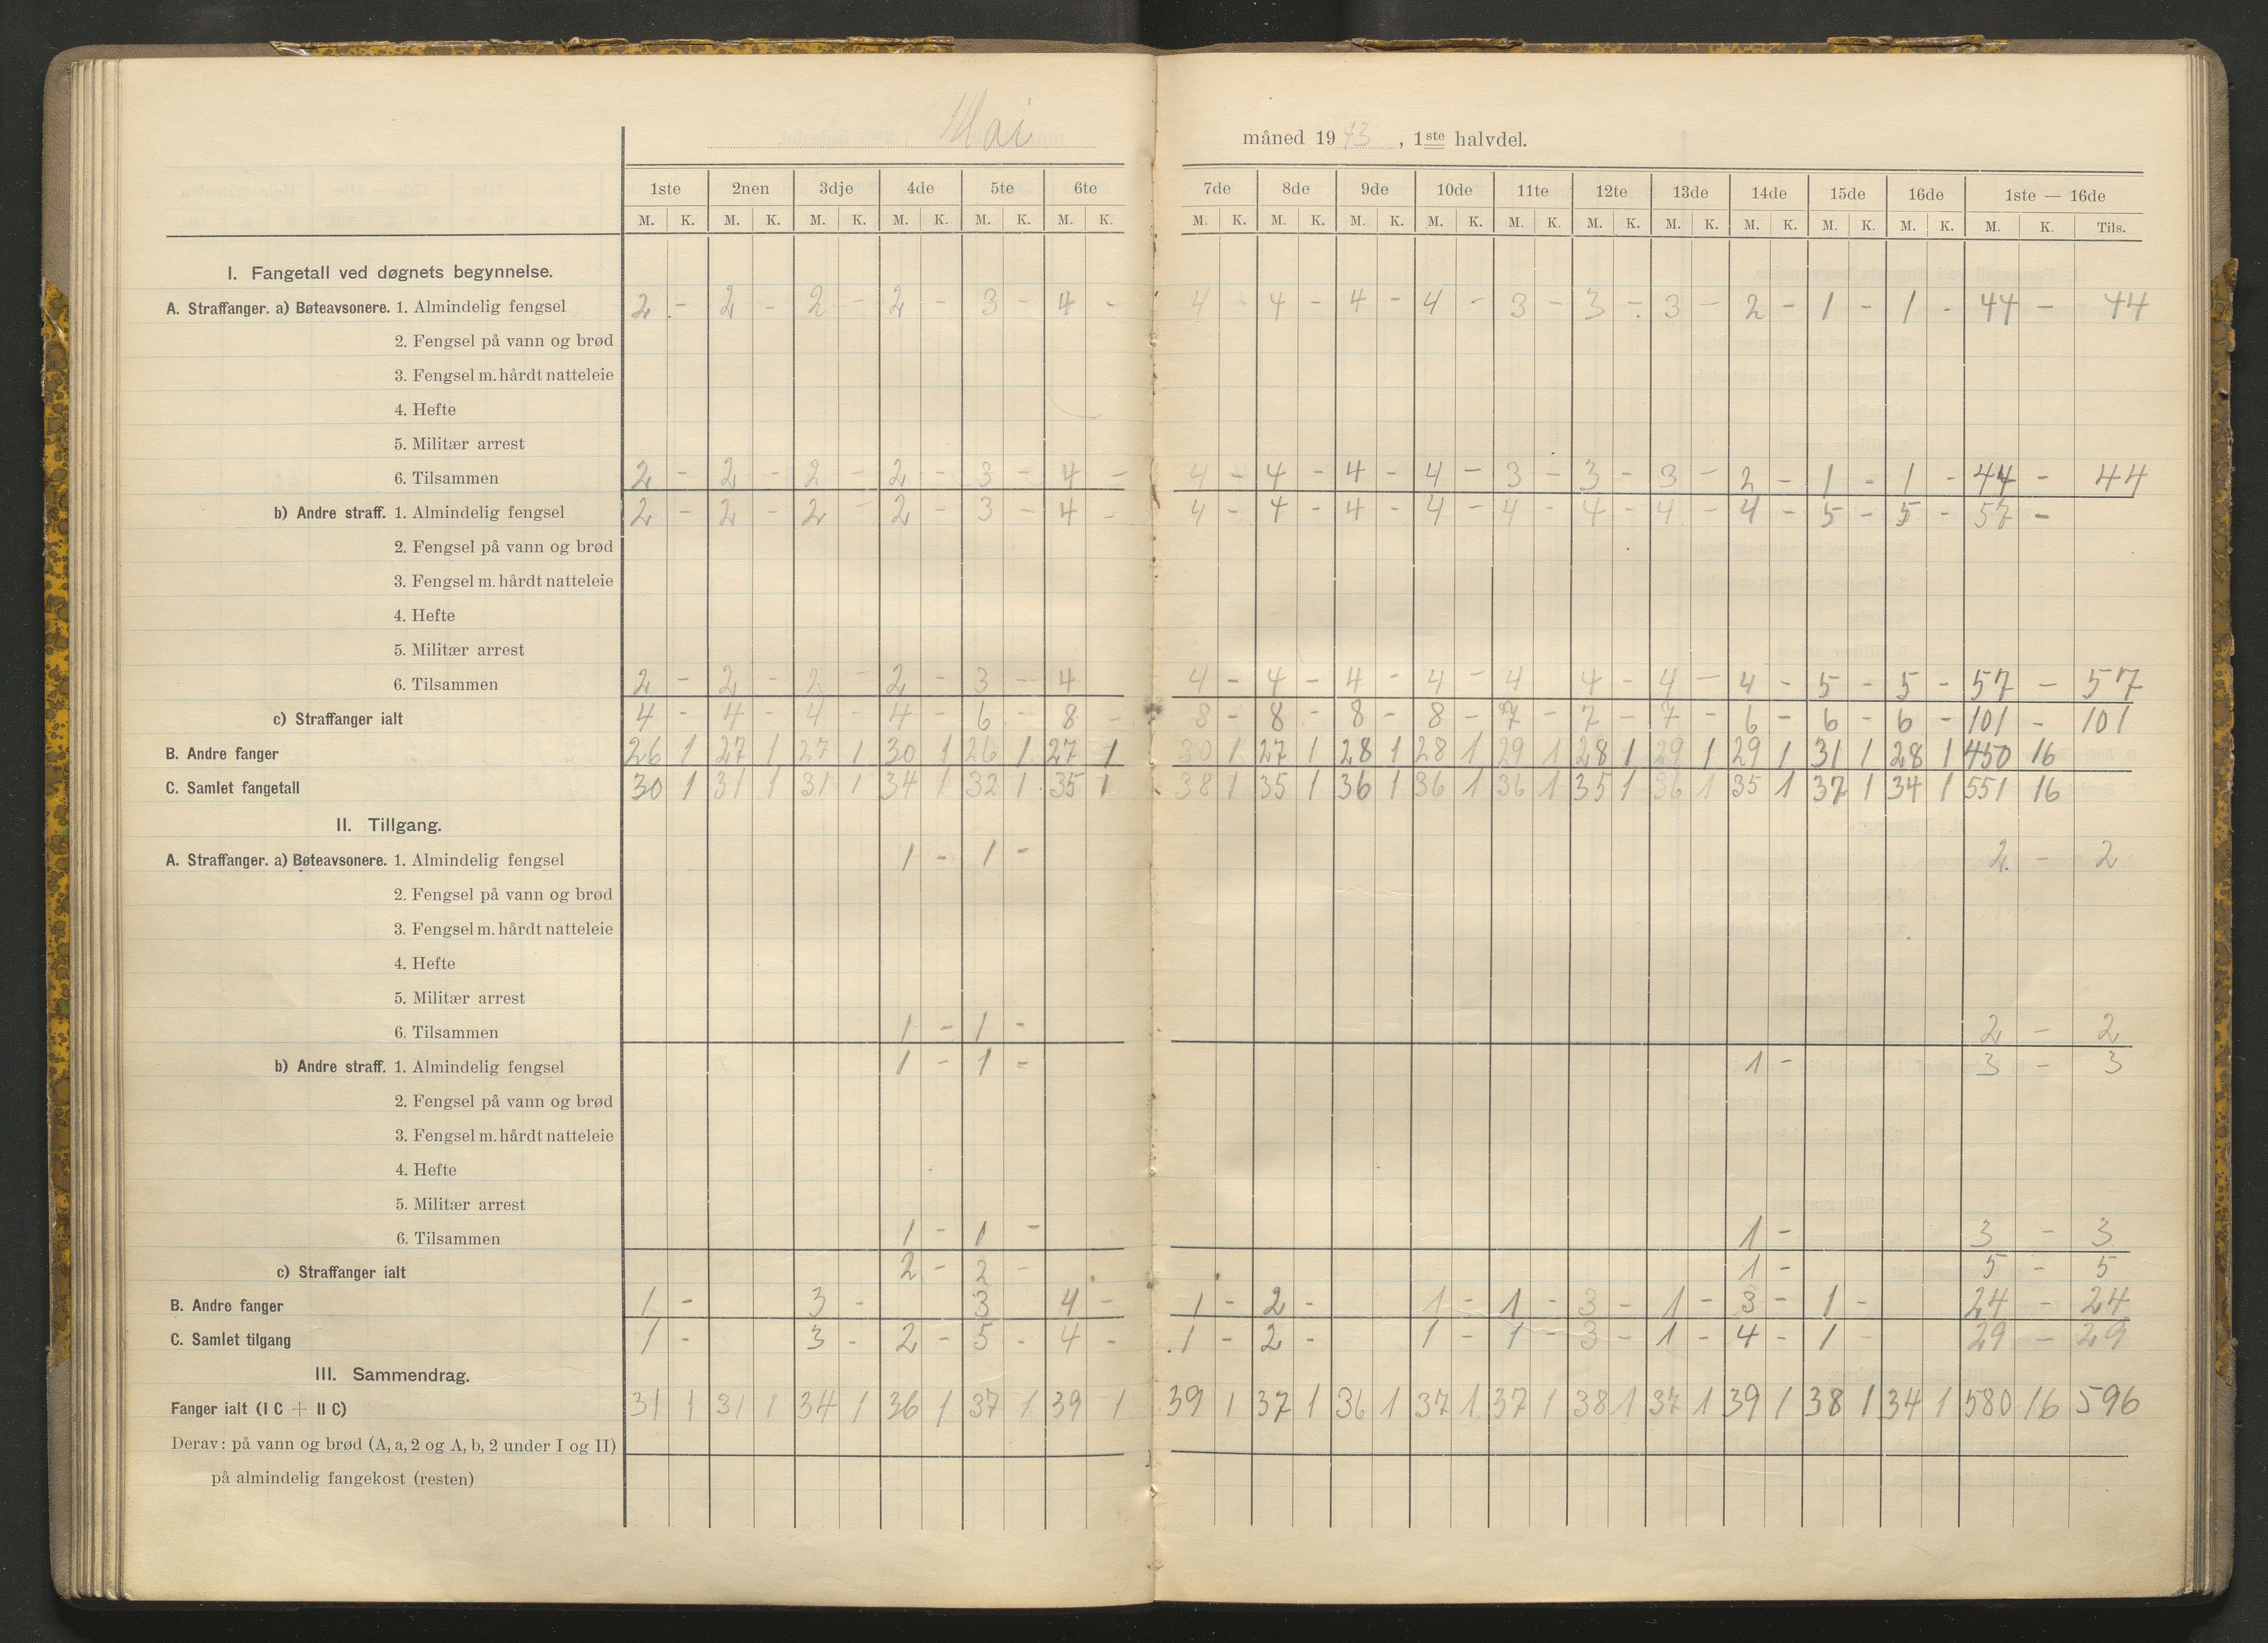 Mai måned 1943, 1ste halvdel.
1ste 2nen 3dje 4de 5te 6te 7de 8de 9de 10de 11te 12te 13de 14de 15de 16de 1ste — 16de
M. K. M. K. M. K. M. K. M. K. M. K. M. K. M. K. M. K. M. K. M. K. M. K. M. K. M. K. M. K. M. K. M. K. Tils.
I. Fangetall ved døgnets begynnelse.
A. Straffanger. a) Bøteavsonere. 1. Almindelig fengsel 2 - 2 - 2 - 2 - 3 - 4 - 4 - 4 - 4 - 4 - 3 - 3 - 3 - 2 - 1 - 1 - 44 - 44
2. Fengsel på vann og brød
3. Fengsel m. hårdt natteleie
4. Hefte
5. Militær arrest
6. Tilsammen 2 - 2 - 2 - 2 - 3 - 4 - 4 - 4 - 4 - 4 - 3 - 3 - 3 - 2 - 1 - 1 - 44 - 44
b) Andre straff. 1. Almindelig fengsel 2 - 2 - 2 - 2 - 3 - 4 - 4 - 4 - 4 - 4 - 4 - 4 - 4 - 4 - 5 - 5 - 57 -
2. Fengsel på vann og brød
3. Fengsel m. hårdt natteleie
4. Hefte
5. Militær arrest
6. Tilsammen 2 - 2 - 2 - 2 - 3 - 4 4 - 4 - 4 - 4 - 4 4 - 4 - 4 - 5 - 5 - 57 - 57
c) Straffanger ialt 4 - 4 - 4 - 4 - 6 - 8 - 8 - 8 - 8 - 8 - 7 - 7 - 7 - 6 - 6 - 6 - 101 - 101
B. Andre fanger 26 1 27 1 27 1 30 1 26 1 27 1 30 1 27 1 28 1 28 1 29 1 28 1 29 1 29 1 31 1 28 1 450 16
C. Samlet fangetall 30 1 31 1 31 1 34 1 32 1 35 1 38 1 35 1 36 1 36 1 36 1 35 1 36 1 35 1 37 1 34 1 551 16
II. Tillgang.
A. Straffanger. a) Bøteavsonere. 1. Almindelig fengsel 1 - 1 - 2 - 2
2. Fengsel på vann og brød
3. Fengsel m. hårdt natteleie
4. Hefte
5. Militær arrest
6. Tilsammen 1 - 1 - 2 - 2
b) Andre straff. 1. Almindelig fengsel 1 - 1 - 1 - 3 - 3
2. Fengsel på vann og brød
3. Fengsel m. hårdt natteleie
4. Hefte
5. Militær arrest
6. Tilsammen 1 - 1 - 1 - 3 - 3
c) Straffanger ialt 2 - 2 - 1 - 5 - 5
B. Andre fanger 1 - 3 - 3 4 - 1 - 2 - 1 - 1 - 3 - 1 - 3 - 1 - 24 - 24
C. Samlet tilgang 1 - 3 - 2 - 5 - 4 - 1 - 2 - 1 - 1 - 3 - 1 - 4 - 1 - 29 - 29
III. Sammendrag.
Fanger ialt (I C + II C) 31 1 31 1 34 1 36 1 37 1 39 1 39 1 37 1 36 1 37 1 37 1 38 1 37 1 39 1 38 1 34 1 580 16 596
Derav: på vann og brød (A, a, 2 og A, b, 2 under I og II)
på almindelig fangekost (resten)